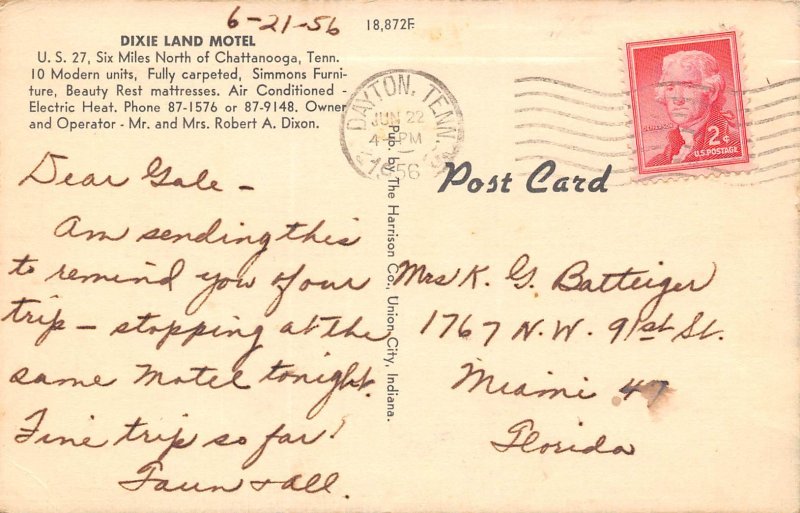 6-21-56
18,872F
DIXIE LAND MOTEL
U. S. 27, Six Miles North of Chattanooga, Tenn.
10 Modern units, Fully carpeted, Simmons Furni-
ture, Beauty Rest mattresses. Air Conditioned -
Electric Heat. Phone 87-1576 or 87-9148. Owner
and Operator - Mr. and Mrs. Robert A. Dixon.
DAYTON, TENN.
JUN 22
4 - PM
1956
2¢
U.S. POSTAGE
Post Card
Pub. by The Harrison Co., Union City, Indiana.
Dear Gale -
Am sending this
to remind you of our
trip - stopping at the
same motel tonight.
Fine trip so far!
Faun & all.
Mrs K. G. Batteiger
1767 N.W. 91st St.
Miami 47
Florida